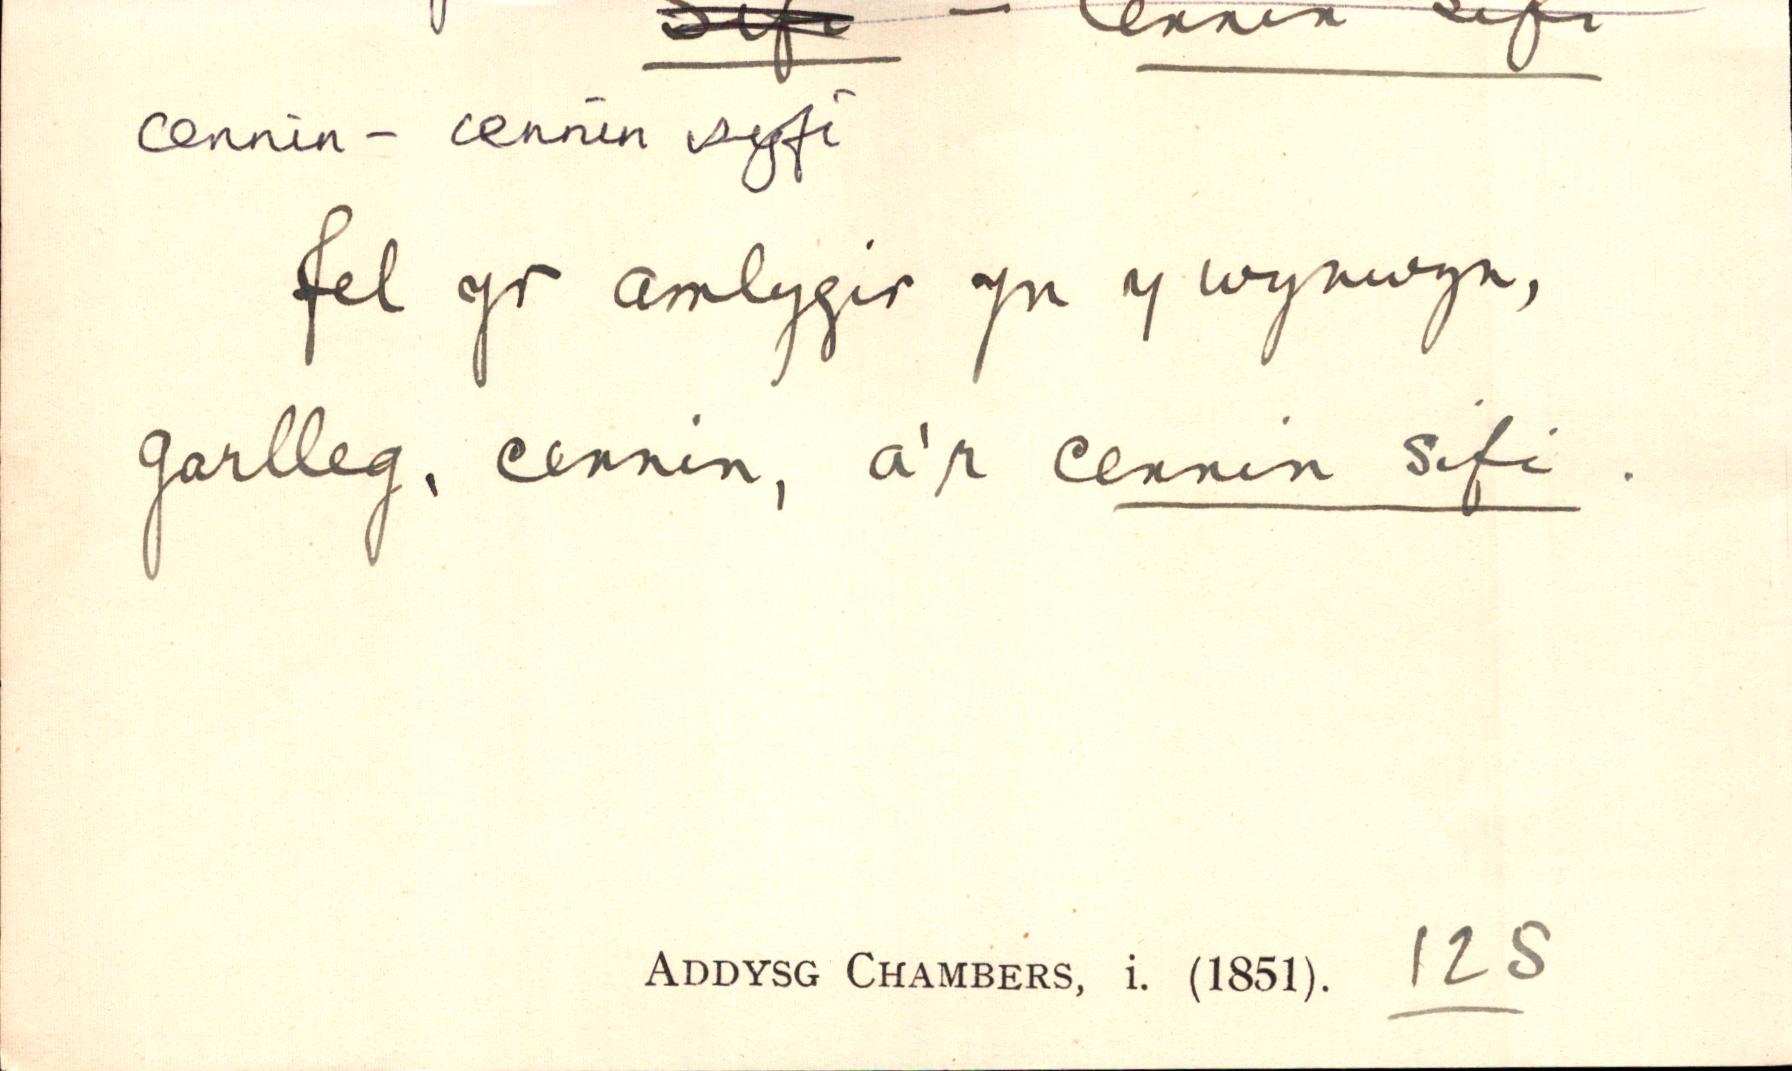 sifi - Cennin sifi
cennin - cennin syfi
fel yr amlygir yn y wynwyn,
garlleg, cennin, a'r cennin sifi.
ADDYSG CHAMBERS, i. (1851). 125